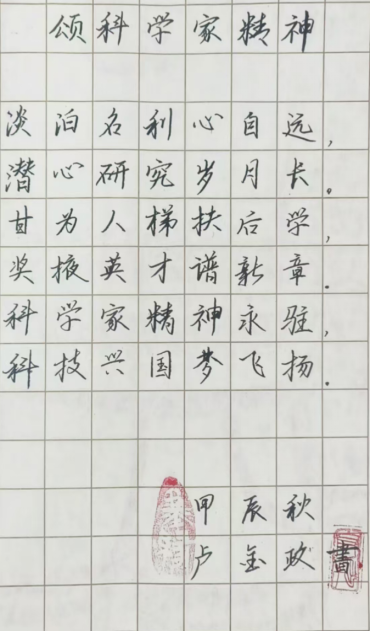 颂科学家精神
淡泊名利心自远，
潜心研究岁月长。
甘为人梯扶后学，
奖掖英才谱新章.
科学家精神永驻，
科技兴国梦飞扬.
甲辰秋
卢金政書